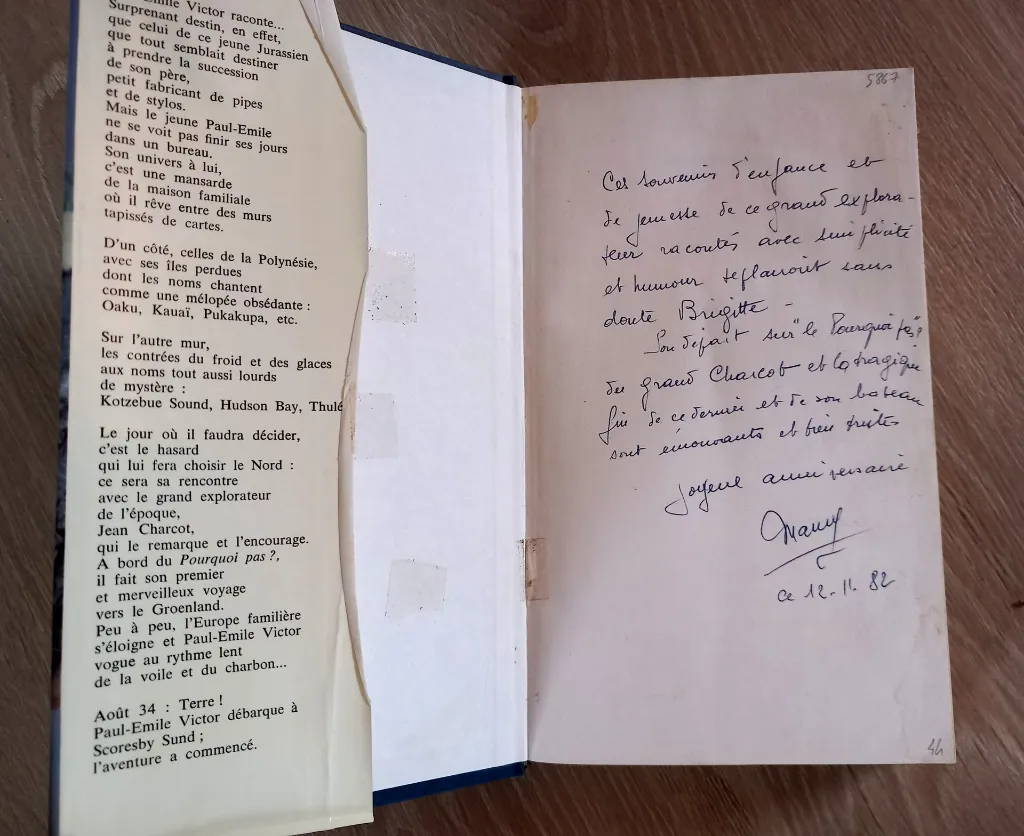 Emile Victor raconte...
Surprenant destin, en effet,
que celui de ce jeune Jurassien
que tout semblait destiner
à prendre la succession
de son père,
petit fabricant de pipes
et de stylos.
Mais le jeune Paul-Emile
ne se voit pas finir ses jours
dans un bureau.
Son univers à lui,
c'est une mansarde
de la maison familiale
où il rêve entre des murs
tapissés de cartes.
D'un côté, celles de la Polynésie,
avec ses îles perdues
dont les noms chantent
comme une mélopée obsédante :
Oaku, Kauaï, Pukakupa, etc.
Sur l'autre mur,
les contrées du froid et des glaces
aux noms tout aussi lourds
de mystère :
Kotzebue Sound, Hudson Bay, Thulé
Le jour où il faudra décider,
c'est le hasard
qui lui fera choisir le Nord :
ce sera sa rencontre
avec le grand explorateur
de l'époque,
Jean Charcot,
qui le remarque et l'encourage.
A bord du Pourquoi pas ?,
il fait son premier
et merveilleux voyage
vers le Groenland.
Peu à peu, l'Europe familière
s'éloigne et Paul-Emile Victor
vogue au rythme lent
de la voile et du charbon...
Août 34 : Terre !
Paul-Emile Victor débarque à
Scoresby Sund ;
l'aventure a commencé.
5867
Ces souvenirs d'enfance et
de jeunesse de ce grand explora-
teur racontés avec simplicité
et humour te plairont sans
doute Brigitte -
Son départ sur "le Pourquoi pas"?
du grand Charcot et la tragique
fin de ce dernier et de son bateau
sont émouvants et bien tristes
Joyeux anniversaire
ce 12.11.82
44